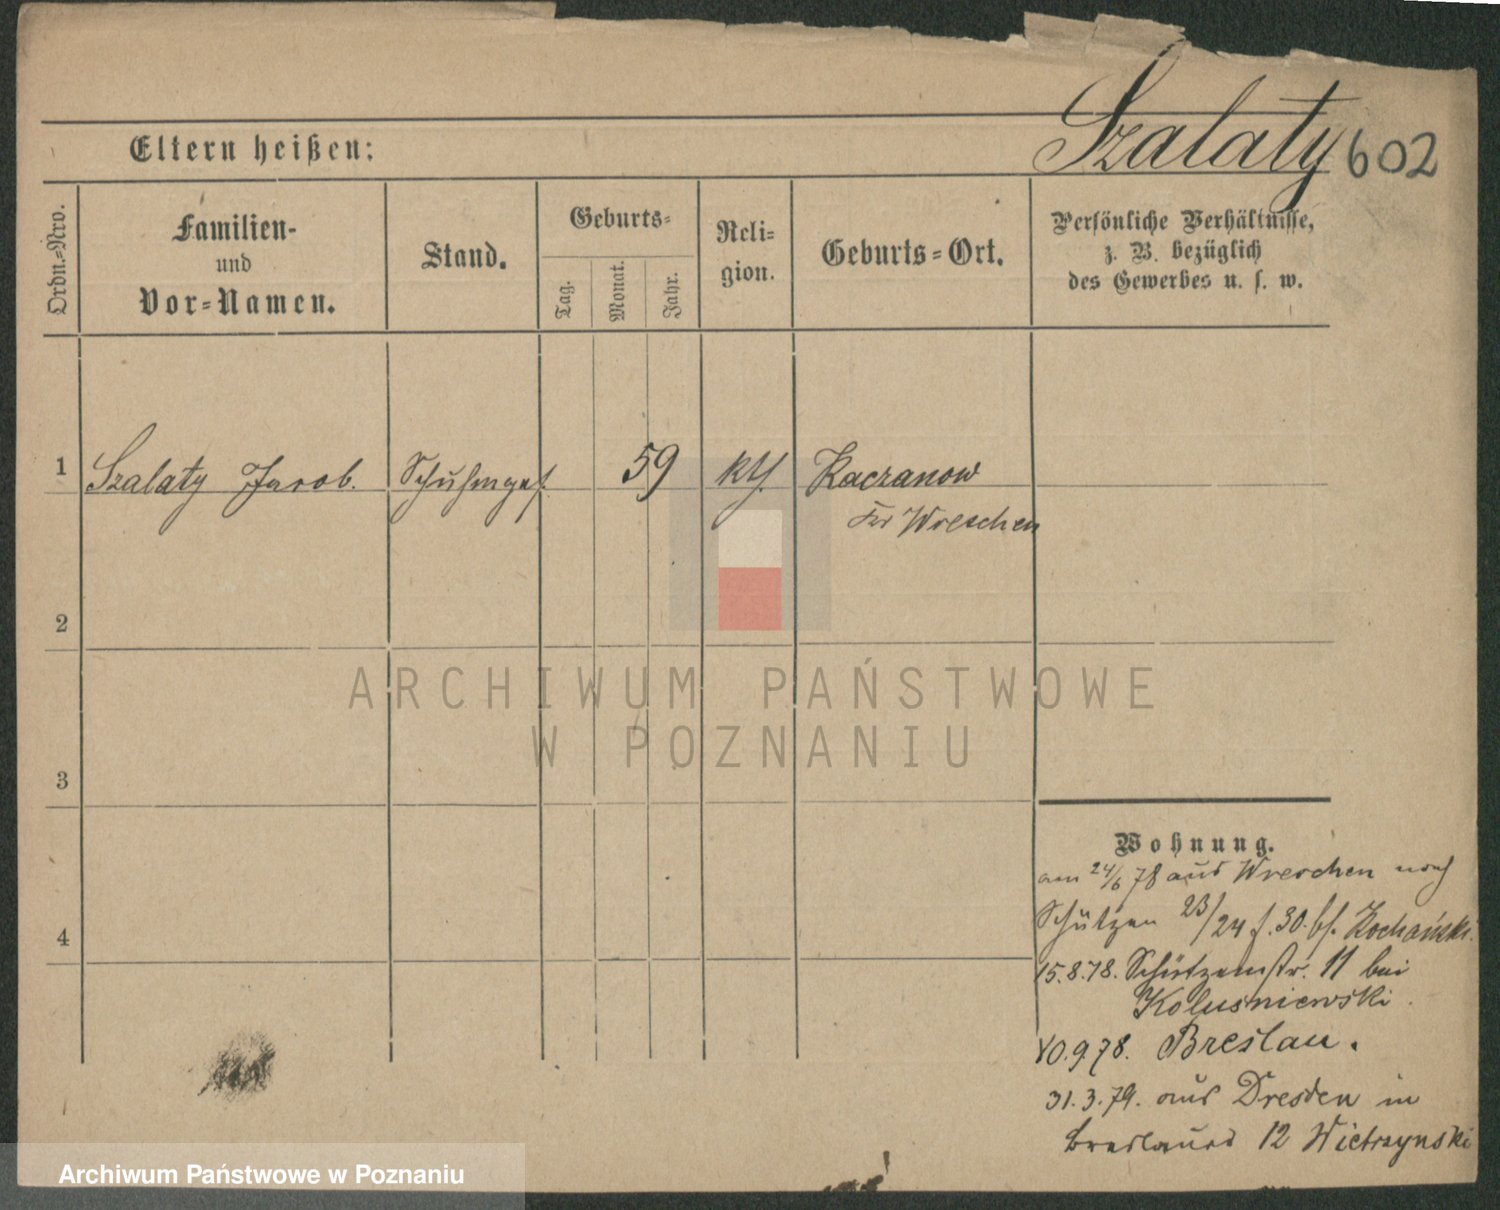 Szalaty 602
Eltern heißen:
Ordn.-Nro.
Familien-
und
Vor-Namen.
Stand.
Geburts-
Tag.
Monat.
Jahr.
Reli-
gion.
Geburts-Ort.
Persönliche Verhältnisse,
z. B. bezüglich
des Gewerbes u. s. w.
1 Szalaty Jacob. Schuhmges. 59 kth. Kaczanow
Kr Wreschen
2
ARCHIWUM PAŃSTWOWE
W POZNANIU
3
Wohnung.
am 24/6 78 aus Wreschen nach
Schützen 23/24 f. 30. bh. Kochański.
4
15.8.78. Schützenstr. 11 bei
Koluśniewski.
10.9.78. Breslau.
31.3.79. aus Dresden in
Breslauerst 12 Wietrzynski
Archiwum Państwowe w Poznaniu